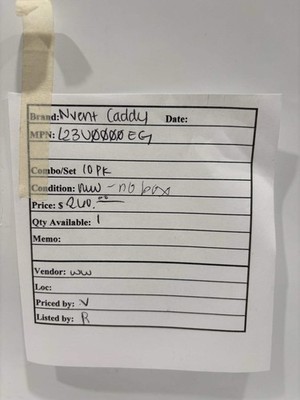 Brand: Nvent Caddy Date:
MPN: L23U0000EG
Combo/Set 10 PK
Condition: new - no box
Price: $ 260.00
Qty Available: 1
Memo:
Vendor: WW
Loc:
Priced by: V
Listed by: R